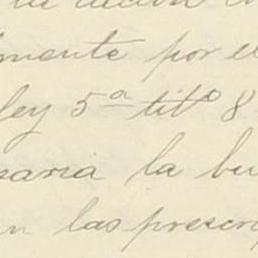 mente por el
ley 5ª titº 8
naria la bu
n las prescrip